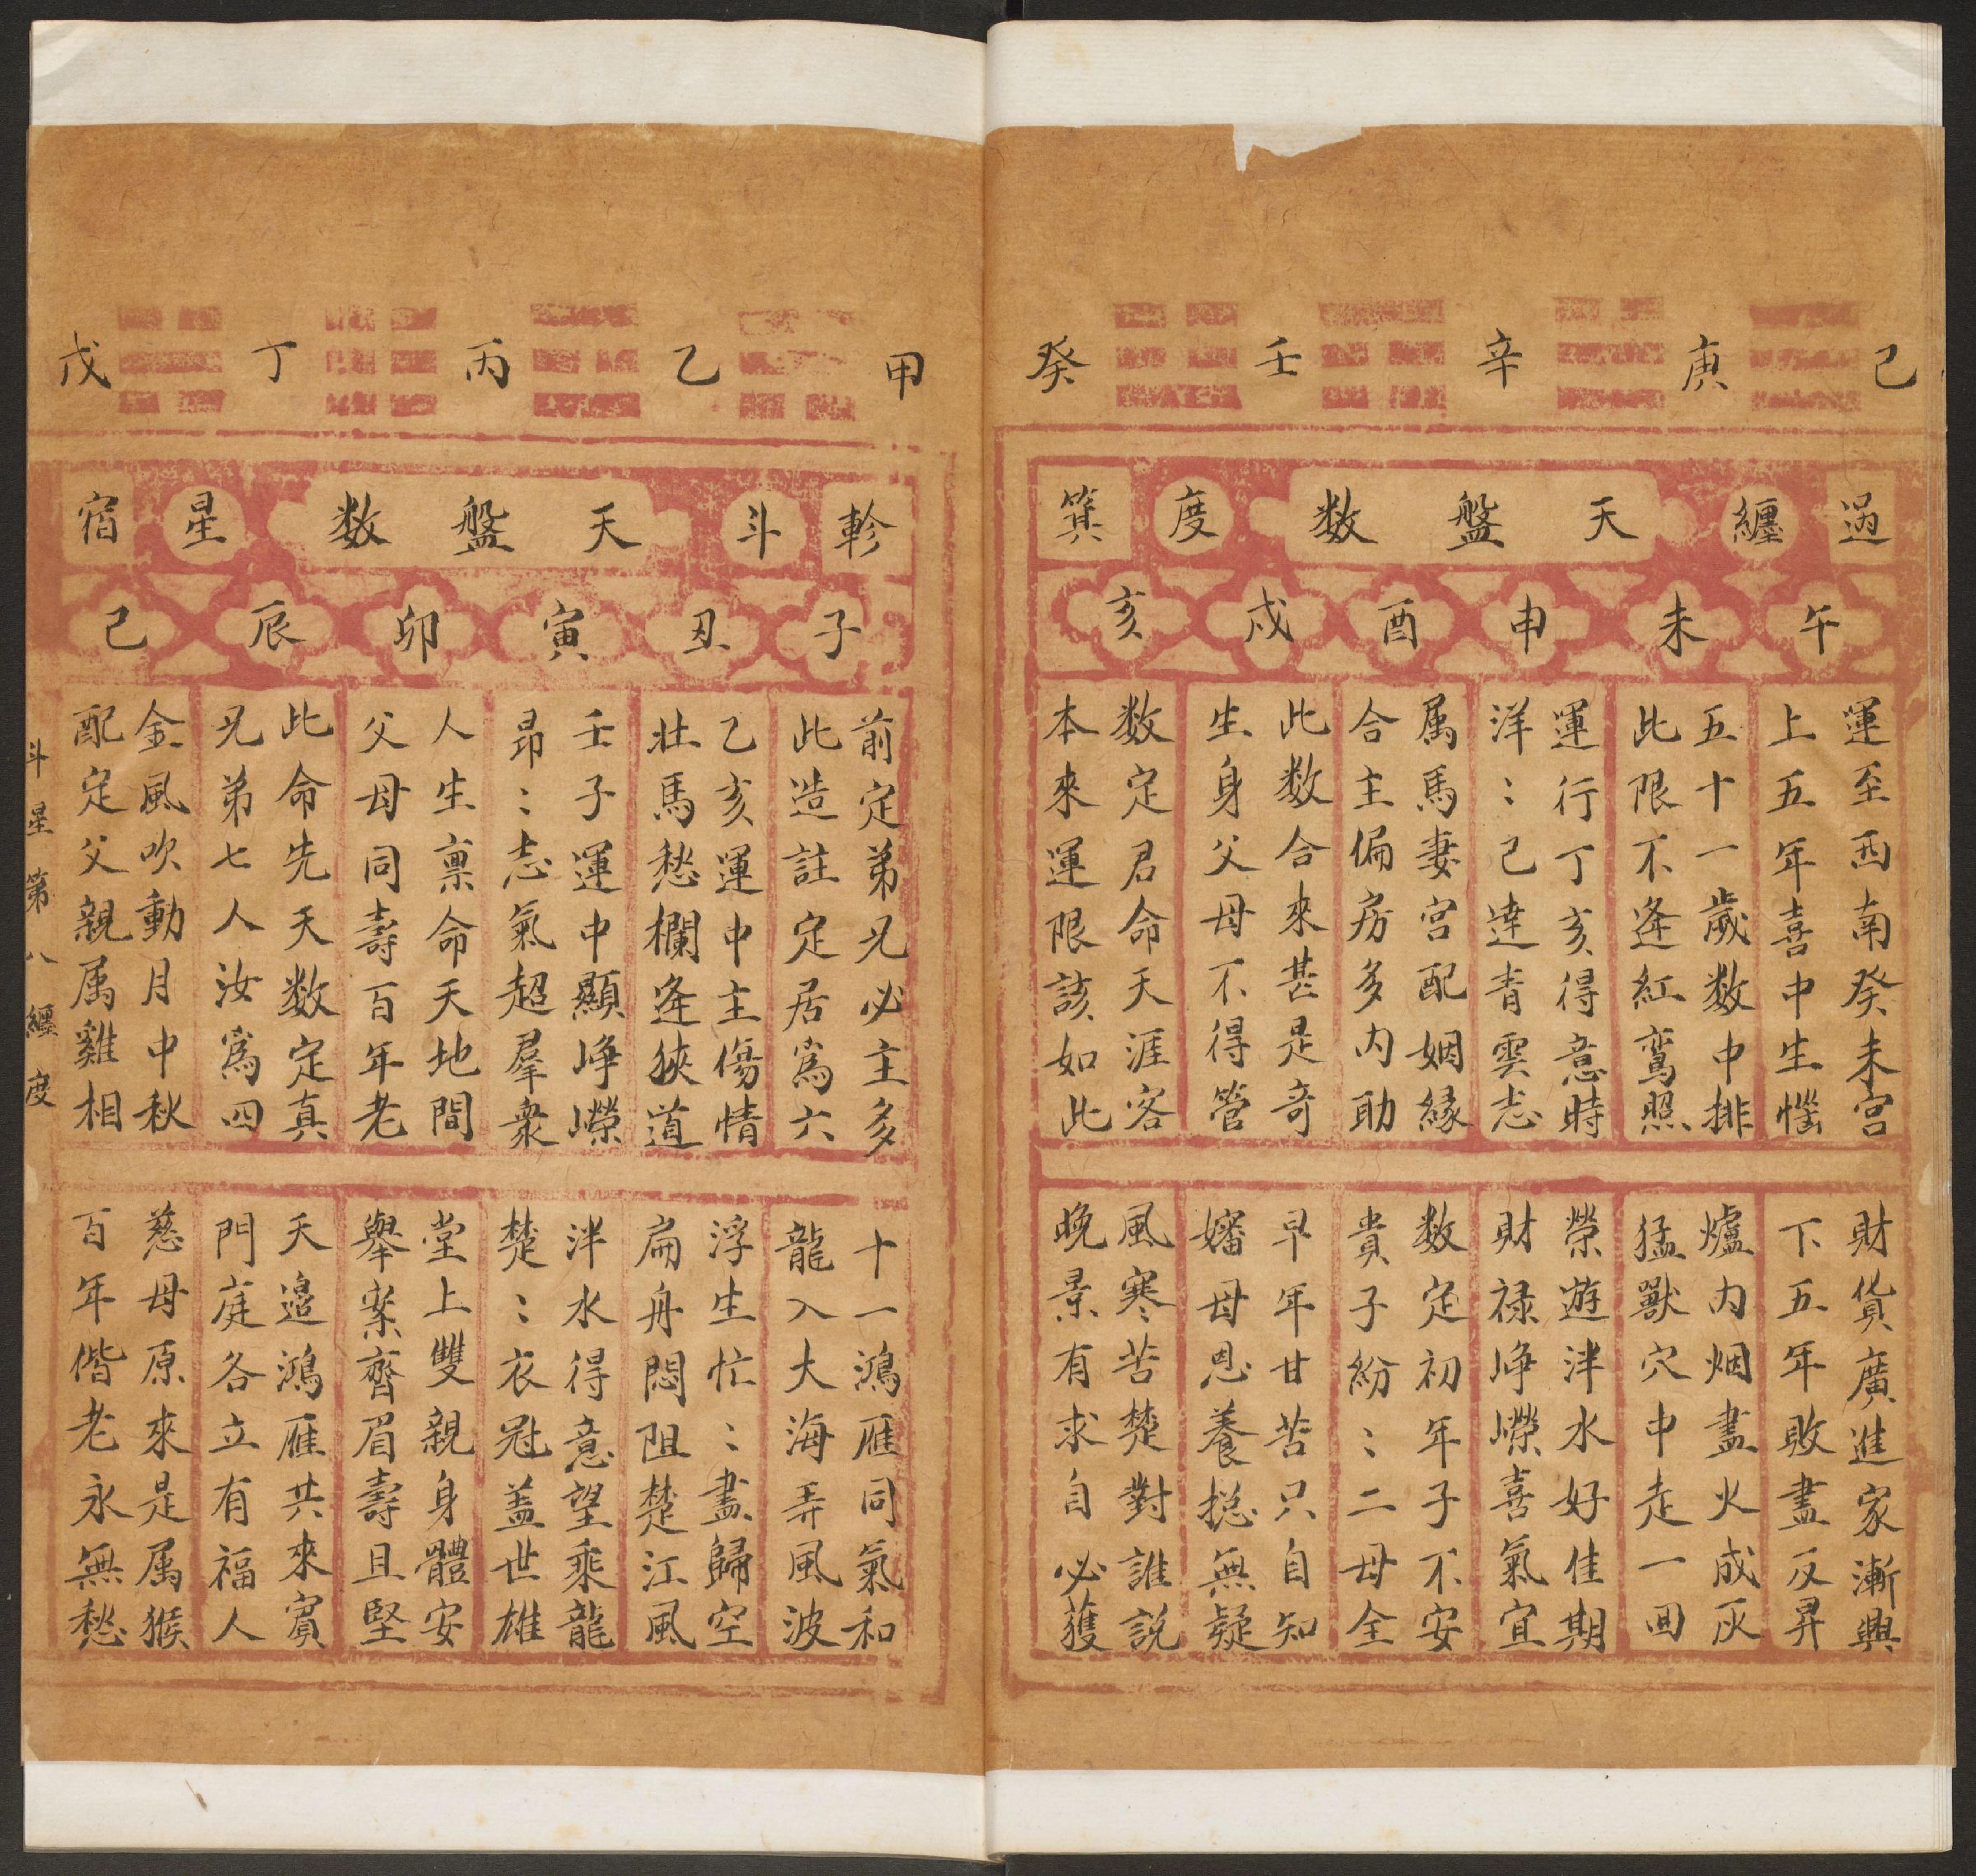 己 庚 辛 壬 癸
過 纏 天盤数 度 箕
午 未 申 酉 戍 亥
運至西南癸未宮 財貨廣進家漸興
上五年喜中生惱 下五年敗盡反昇
五十一歲数中排 爐内烟盡火成灰
此限不逢紅鸞照 猛獸穴中走一回
運行丁亥得意時 榮遊泮水好佳期
洋：己達青雲志 財禄崢嶸喜氣宜
属馬妻宮配姻緣 数定初年子不安
合主偏房多内助 貴子紛：二母全
此数合來甚是奇 早年甘苦只自知
生身父母不得管 嬸母恩養捴無疑
数定君命天涯客 風寒苦楚對誰説
本來運限該如此 晚景有求自必獲
甲 乙 丙 丁 戊
軫 斗 天盤数 星 宿
子 丑 寅 卯 辰 己
前定弟兄必主多 十一鴻雁同氣和
此造註定居爲六 龍入大海弄風波
乙亥運中主傷情 浮生忙：盡歸空
壯馬愁欄逢狹道 扁舟悶阻楚江風
壬子運中顯崢嶸 泮水得意望乘龍
昂：志氣超羣衆 楚：衣冠盖世雄
人生禀命天地間 堂上雙親身體安
父母同壽百年老 舉案齊眉壽且堅
此命先天数定真 天邉鴻雁共來賓
兄弟七人汝爲四 門庭各立有福人
金風吹動月中秋 慈母原來是属猴
配定父親属雞相 百年偕老永無愁
斗星第八纏度